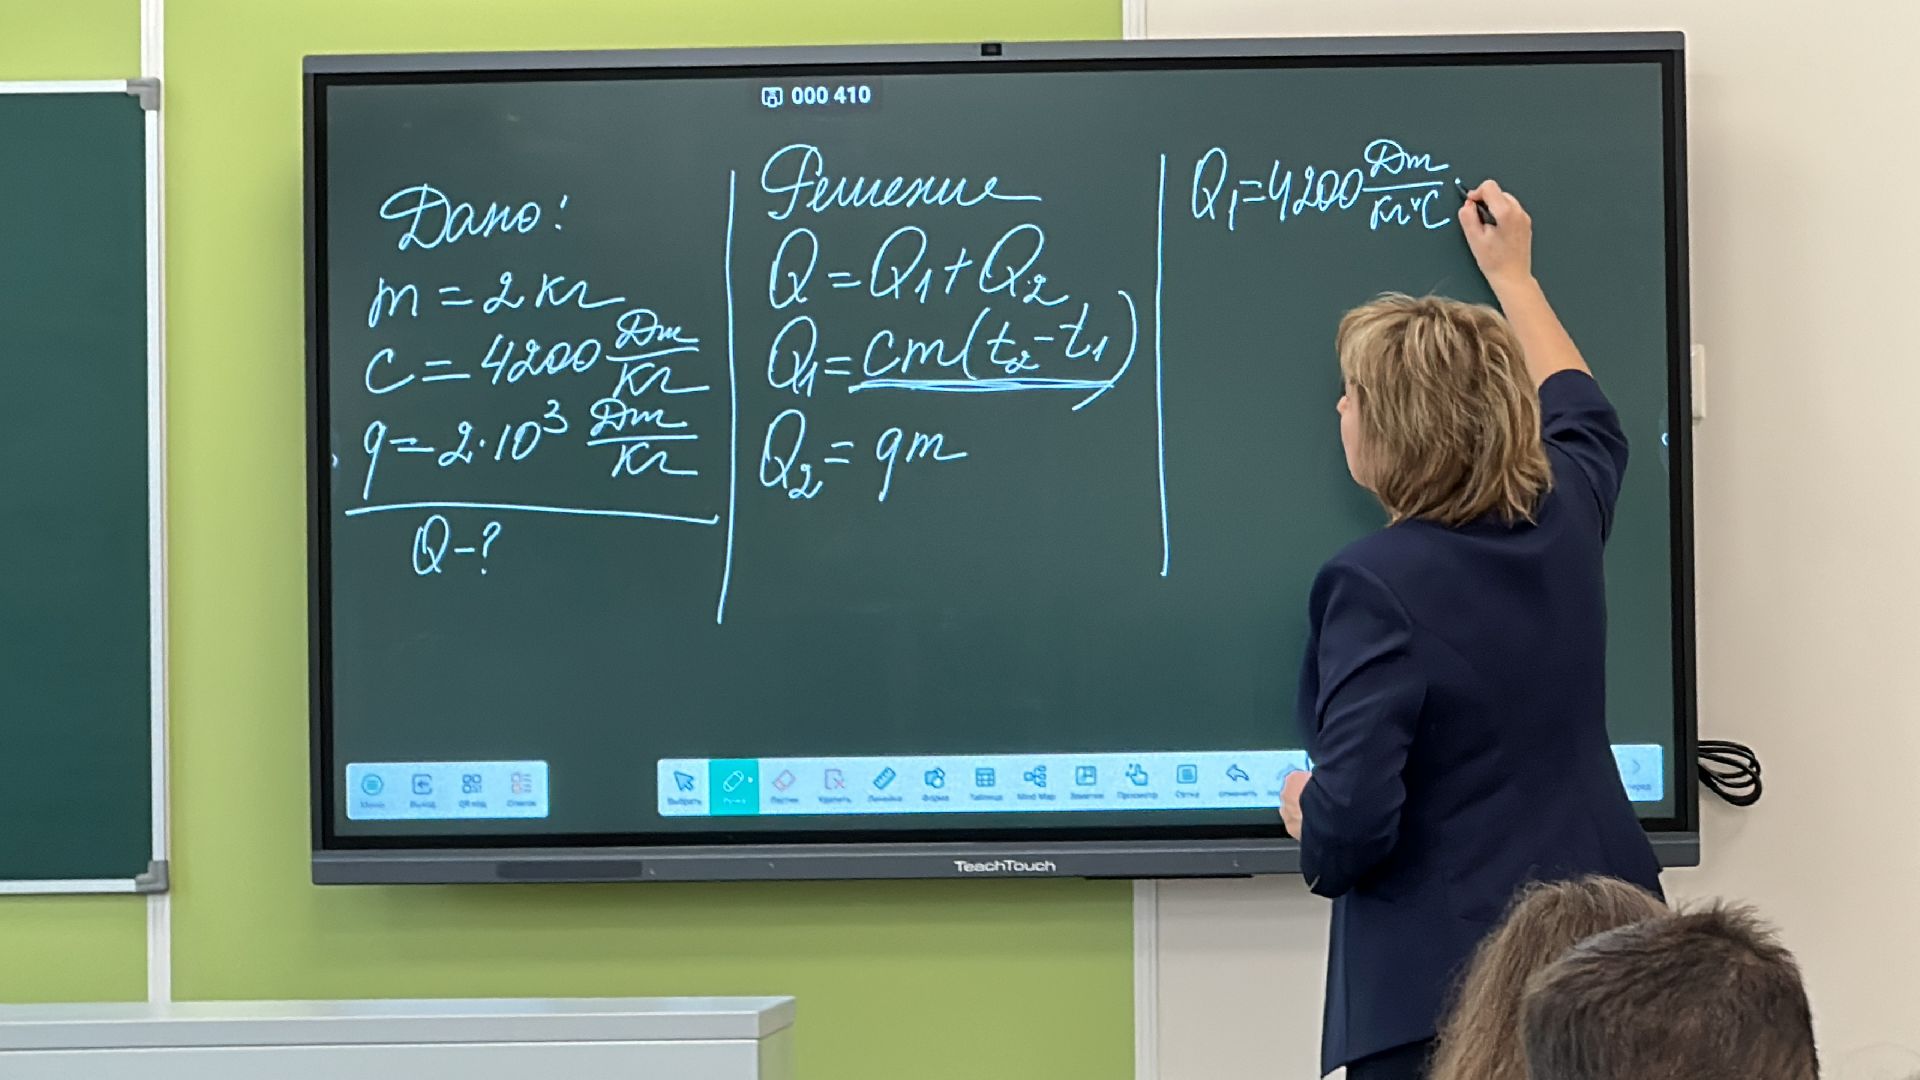 000 410
Дано:
m = 2 кг
c = 4200 Дж/кг
q = 2·10³ Дж/кг
Q – ?
Решение
Q = Q₁ + Q₂
Q₁ = cm(t₂ - t₁)
Q₂ = qm
Q₁ = 4200 Дж/кг°C ·
Меню Выход QR код Список
Выбрать Ручка Ластик Удалить Линейка Форма Таблица Mind Map Заметки Просмотр Сетка отменить
TeachTouch